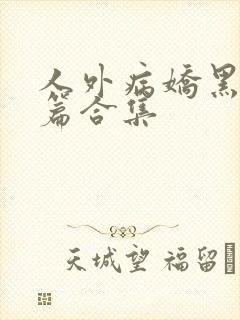 人外病嬌黑
篇合集
天城望 福留